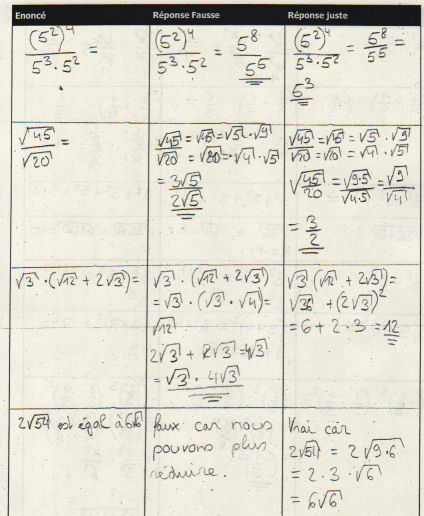 Enoncé Réponse Fausse Réponse juste
(5²)⁴ / 5³·5² =
(5²)⁴ / 5³·5² = 5⁸ / 5⁵
(5²)⁴ / 5³·5² = 5⁸ / 5⁵ =
5³
√45 / √20 =
√45 = √45 = √5·√9
√20 = √20 = √4·√5
= 3√5 / 2√5
√45 = √45 = √5·√9
√20 = √20 = √4·√5
√45/20 = √9·5 / √4·5 = √9 / √4
= 3/2
√3·(√12 + 2√3) =
√3·(√12 + 2√3)
= √3·(√3·√4) =
√12
2√3 + 2√3 = 4√3
= √3·4√3
√3(√12 + 2√3) =
√36 + (2√3)²
= 6 + 2·3 = 12
2√54 est égal à 6√6
faux car nous
pouvons plus
réduire.
Vrai car
2√54 = 2√9·6
= 2·3·√6
= 6√6